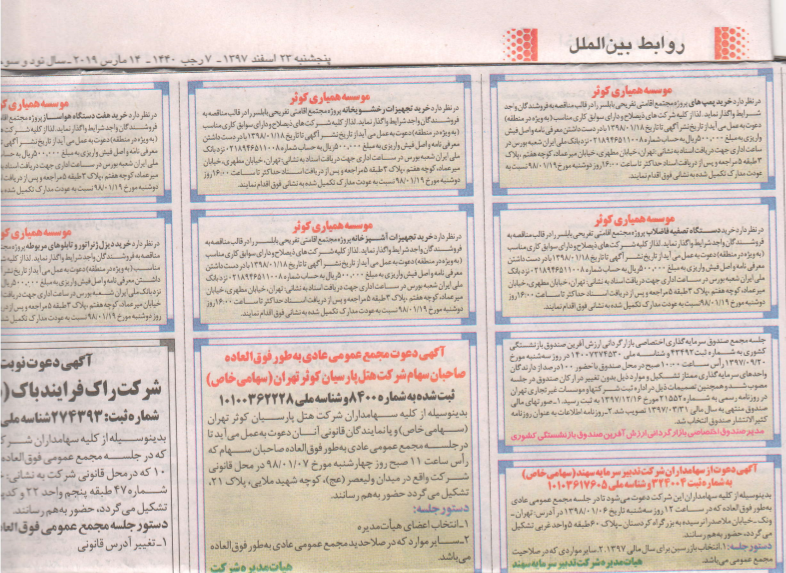 روابط بین‌الملل
پنجشنبه ۲۳ اسفند ۱۳۹۷ - ۷ رجب ۱۴۴۰ - ۱۴ مارس ۲۰۱۹ - سال نود و سوم
موسسه همیاری کوثر
در نظر دارد خرید پمپ‌های پروژه مجتمع اقامتی تفریحی بابلسر را در قالب مناقصه به فروشندگان واجد
شرایط واگذار نماید. لذا از کلیه شرکت‌های ذیصلاح و دارای سوابق کاری مناسب (به ویژه در منطقه)
دعوت به عمل می آید از تاریخ نشر آگهی تا تاریخ ۱۳۹۸/۰۱/۱۸ با در دست داشتن معرفی نامه و اصل فیش
واریزی به مبلغ ۵۰۰,۰۰۰ ریال به حساب شماره ۰۲۱۸۹۴۶۵۱۱۰۰۸ نزد بانک ملی ایران شعبه بورس در
ساعت اداری جهت دریافت اسناد به نشانی: تهران، خیابان مطهری، خیابان میرعماد، کوچه هفتم، پلاک
۳ طبقه ۵ مراجعه و پس از دریافت اسناد حداکثر تا ساعت ۱۶:۰۰ روز دوشنبه مورخ ۹۸/۰۱/۱۹ نسبت به
عودت مدارک تکمیل شده به نشانی فوق اقدام نمایند.
موسسه همیاری کوثر
در نظر دارد خرید دستگاه تصفیه فاضلاب پروژه مجتمع اقامتی تفریحی بابلسر را در قالب مناقصه به
فروشندگان واجد شرایط واگذار نماید. لذا از کلیه شرکت‌های ذیصلاح و دارای سوابق کاری مناسب
(به ویژه در منطقه) دعوت به عمل می آید از تاریخ نشر آگهی تا تاریخ ۱۳۹۸/۰۱/۱۸ با در دست
داشتن معرفی نامه و اصل فیش واریزی به مبلغ ۵۰۰,۰۰۰ ریال به حساب شماره ۰۲۱۸۹۴۶۵۱۱۰۰۸ نزد بانک
ملی ایران شعبه بورس در ساعت اداری جهت دریافت اسناد به نشانی: تهران، خیابان مطهری، خیابان
میرعماد، کوچه هفتم، پلاک ۳ طبقه ۵ مراجعه و پس از دریافت اسناد حداکثر تا ساعت ۱۶:۰۰ روز
دوشنبه مورخ ۹۸/۰۱/۱۹ نسبت به عودت مدارک تکمیل شده به نشانی فوق اقدام نمایند.
جلسه مجمع صندوق سرمایه گذاری اختصاصی بازارگردانی ارزش آفرین صندوق بازنشستگی
کشوری به شماره ثبت ۴۲۴۹۲ و شناسه ملی ۱۴۰۰۷۲۷۴۵۳۰ در روز سه‌شنبه مورخ
۱۳۹۷/۰۹/۲۰ رأس ساعت ۱۰:۰۰ صبح در محل صندوق با حضور ۱۰۰ درصد از دارندگان
واحدهای سرمایه‌گذاری ممتاز تشکیل و موارد ذیل بدون تغییر در ارکان صندوق در جلسه
مصوب شد و همچنین تصمیمات ذیل در اداره ثبت شرکتها و موسسات غیرتجاری تهران
در روزنامه رسمی به شماره ۲۱۵۵۲ مورخ ۱۳۹۷/۱۲/۱۶ به ثبت رسید. ۱- صورتهای مالی
صندوق منتهی به سال مالی ۱۳۹۷/۰۳/۳۱ تصویب شد. ۲- روزنامه اطلاعات به عنوان روزنامه
کثیرالانتشار صندوق انتخاب شد.
مدیر صندوق اختصاصی بازارگردانی ارزش آفرین صندوق بازنشستگی کشوری
آگهی دعوت از سهامداران شرکت تدبیر سرمایه سهند (سهامی خاص)
به شماره ثبت ۳۲۴۰۰۴ و شناسه ملی ۱۰۱۰۳۶۱۷۶۰۵
بدینوسیله از کلیه سهامداران این شرکت دعوت می‌شود تا در جلسه مجمع عمومی عادی
که در ساعت ۱۲ روز سه‌شنبه تاریخ ۱۳۹۸/۰۱/۰۶ در آدرس: تهران-
ونک- خیابان ملاصدرا نرسیده به بزرگراه کردستان- پلاک ۶۰ طبقه ۵ واحد غربی تشکیل
می گردد، حضور به هم رسانند.
دستور جلسه: ۱. انتخاب بازرسین برای سال مالی ۱۳۹۷ ۲. سایر مواردی که در صلاحیت
مجمع عمومی عادی می‌باشد. هیات مدیره شرکت تدبیر سرمایه سهند
موسسه همیاری کوثر
در نظر دارد خرید تجهیزات رختشویخانه پروژه مجتمع اقامتی تفریحی بابلسر را در قالب مناقصه به
فروشندگان واجد شرایط واگذار نماید. لذا از کلیه شرکت های ذیصلاح و دارای سوابق کاری مناسب
(به ویژه در منطقه) دعوت به عمل می آید از تاریخ نشر آگهی تا تاریخ ۱۳۹۸/۰۱/۱۸ با در دست داشتن
معرفی نامه و اصل فیش واریزی به مبلغ ۵۰۰,۰۰۰ ریال به حساب شماره ۰۲۱۸۹۴۶۵۱۱۰۰۸ نزد بانک
ملی ایران شعبه بورس در ساعت اداری جهت دریافت اسناد به نشانی: تهران، خیابان مطهری، خیابان
میرعماد، کوچه هفتم، پلاک ۳ طبقه ۵ مراجعه و پس از دریافت اسناد حداکثر تا ساعت ۱۶:۰۰ روز
دوشنبه مورخ ۹۸/۰۱/۱۹ نسبت به عودت مدارک تکمیل شده به نشانی فوق اقدام نمایند.
موسسه همیاری کوثر
در نظر دارد خرید تجهیزات آشپزخانه پروژه مجتمع اقامتی تفریحی بابلسر را در قالب مناقصه به
فروشندگان واجد شرایط واگذار نماید. لذا از کلیه شرکت های ذیصلاح و دارای سوابق کاری مناسب
(به ویژه در منطقه) دعوت به عمل می آید از تاریخ نشر آگهی تا تاریخ ۱۳۹۸/۰۱/۱۸ با در دست داشتن
معرفی نامه و اصل فیش واریزی به مبلغ ۵۰۰,۰۰۰ ریال به حساب شماره ۰۲۱۸۹۴۶۵۱۱۰۰۸ نزد بانک
ملی ایران شعبه بورس در ساعت اداری جهت دریافت اسناد به نشانی: تهران، خیابان مطهری، خیابان
میرعماد، کوچه هفتم، پلاک ۳ طبقه ۵ مراجعه و پس از دریافت اسناد حداکثر تا ساعت ۱۶:۰۰ روز
دوشنبه مورخ ۹۸/۰۱/۱۹ نسبت به عودت مدارک تکمیل شده به نشانی فوق اقدام نمایند.
آگهی دعوت مجمع عمومی عادی به طور فوق العاده
صاحبان سهام شرکت هتل پارسیان کوثر تهران (سهامی خاص)
ثبت شده به شماره ۸۴۰۰ و شناسه ملی ۱۰۱۰۰۳۶۲۲۲۸
بدینوسیله از کلیه سهامداران شرکت هتل پارسیان کوثر تهران
(سهامی خاص) و یا نمایندگان قانونی آنان دعوت به عمل می‌آید تا
در جلسه مجمع عمومی عادی به‌طور فوق‌العاده صاحبان سهام که
رأس ساعت ۱۱ صبح روز چهارشنبه مورخ ۹۸/۰۱/۰۷ در محل قانونی
شرکت واقع در میدان ولیعصر (عج)، کوچه شهید ملایی، پلاک ۲۱،
تشکیل می گردد حضور به‌هم رسانند.
دستور جلسه:
۱ـ انتخاب اعضای هیأت‌مدیره
۲ـ سایر موارد که در صلاحدید مجمع عمومی عادی به‌طور فوق‌العاده
می‌باشد.
هیات مدیره شرکت
موسسه همیاری کوثر
در نظر دارد خرید هفت دستگاه هواساز
فروشندگان واجد شرایط واگذار نماید. لذا از کلیه
(به ویژه در منطقه) دعوت به عمل می آید از تاریخ نشر آگهی
معرفی نامه و اصل فیش واریزی به مبلغ ۵۰۰,۰۰۰ ریال
ملی ایران شعبه بورس در ساعت اداری جهت دریافت
میرعماد، کوچه هفتم، پلاک ۳ طبقه ۵ مراجعه و پس از دریافت
دوشنبه مورخ ۹۸/۰۱/۱۹ نسبت به عودت مدارک تکمیل
موسسه همیاری کوثر
در نظر دارد خرید دیزل ژنراتور و تابلوهای مربوطه پروژه
فروشندگان واجد شرایط واگذار نماید. لذا از کلیه
مناسب (به ویژه در منطقه) دعوت به عمل می آید از تاریخ
داشتن معرفی نامه و اصل فیش واریزی به مبلغ ۵۰۰,۰۰۰ ریال
نزد بانک ملی ایران شعبه بورس در ساعت اداری
خیابان میرعماد، کوچه هفتم، پلاک ۳ طبقه ۵ مراجعه و پس از
روز دوشنبه مورخ ۹۸/۰۱/۱۹ نسبت به عودت مدارک
آگهی دعوت نوبت
شرکت راک فرایند پاک
شماره ثبت: ۲۷۴۳۹۳ شناسه ملی
بدینوسیله از کلیه سهامداران شرکت
که در جلسه مجمع عمومی فوق‌العاده
۱۰ که در محل قانونی شرکت به نشانی:
شماره ۴۷ طبقه پنجم واحد ۲۲ و کد
تشکیل می گردد، حضور به‌هم رسانند.
دستور جلسه مجمع عمومی فوق العاده
۱ـ تغییر آدرس قانونی